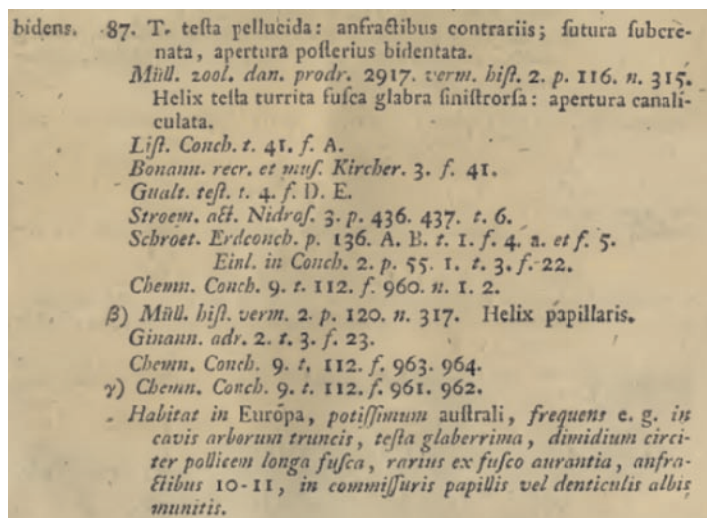 bidens. 87. T. teſta pellucida: anfractibus contrariis; ſutura ſubcre-
nata, apertura poſterius bidentata.
Müll. zool. dan. prodr. 2917. verm. hiſt. 2. p. 116. n. 315.
Helix teſta turrita fuſca glabra ſiniſtrorſa: apertura canali-
culata.
Liſt. Conch. t. 41. f. A.
Bonann. recr. et muſ. Kircher. 3. f. 41.
Gualt. teſt. t. 4. f. D. E.
Stroem. act. Nidroſ. 3. p. 436. 437. t. 6.
Schroet. Erdconch. p. 136. A. B. t. 1. f. 4. a. et f. 5.
Einl. in Conch. 2. p. 55. 1. t. 3. f. 22.
Chemn. Conch. 9. t. 112. f. 960. n. 1. 2.
β) Müll. hiſt. verm. 2. p. 120. n. 317. Helix papillaris.
Ginann. adr. 2. t. 3. f. 23.
Chemn. Conch. 9. t. 112. f. 963. 964.
γ) Chemn. Conch. 9. t. 112. f. 961. 962.
Habitat in Europa, potiſſimum auſtrali, frequens e. g. in
cavis arborum truncis, teſta glaberrima, dimidium circi-
ter pollicem longa fuſca, rarius ex fuſco aurantia, anfra-
ctibus 10-11, in commiſſuris papillis vel denticulis albis
munitis.